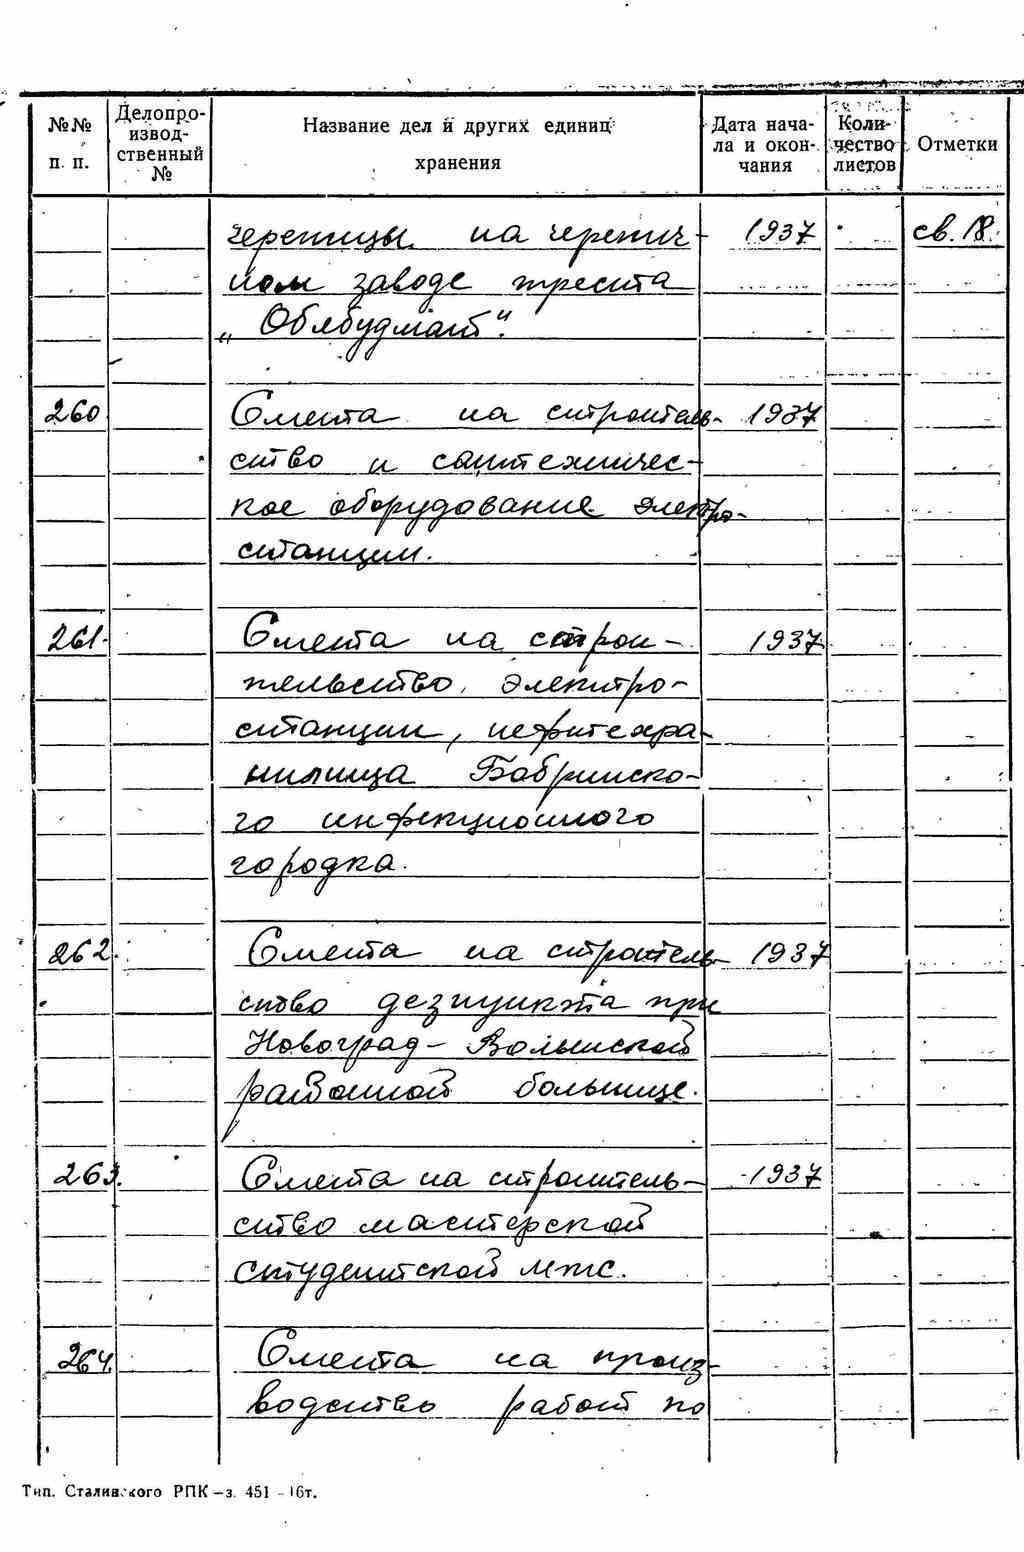 №№ п. п. Делопроизводственный № Название дел и других единиц хранения Дата начала и окончания Количество листов Отметки
черепицы на черепич- 1937 св. 18.
ном заводе треста
„Облбудмат".
260 Смета на строитель- 1937
ство и сантехничес-
кое оборудование электро-
станции.
261. Смета на строи- 1937
тельство, электро-
станции, нефтехра-
нилища Бобринско-
го инфекционного
городка.
262. Смета на строитель- 1937
ство дезпункта при
Новоград-Волынской
районной больнице.
263. Смета на строитель- 1937
ство мастерской
студентской мтс.
264. Смета на произ-
водство работ по
Тип. Сталинского РПК—з. 451 - 16т.